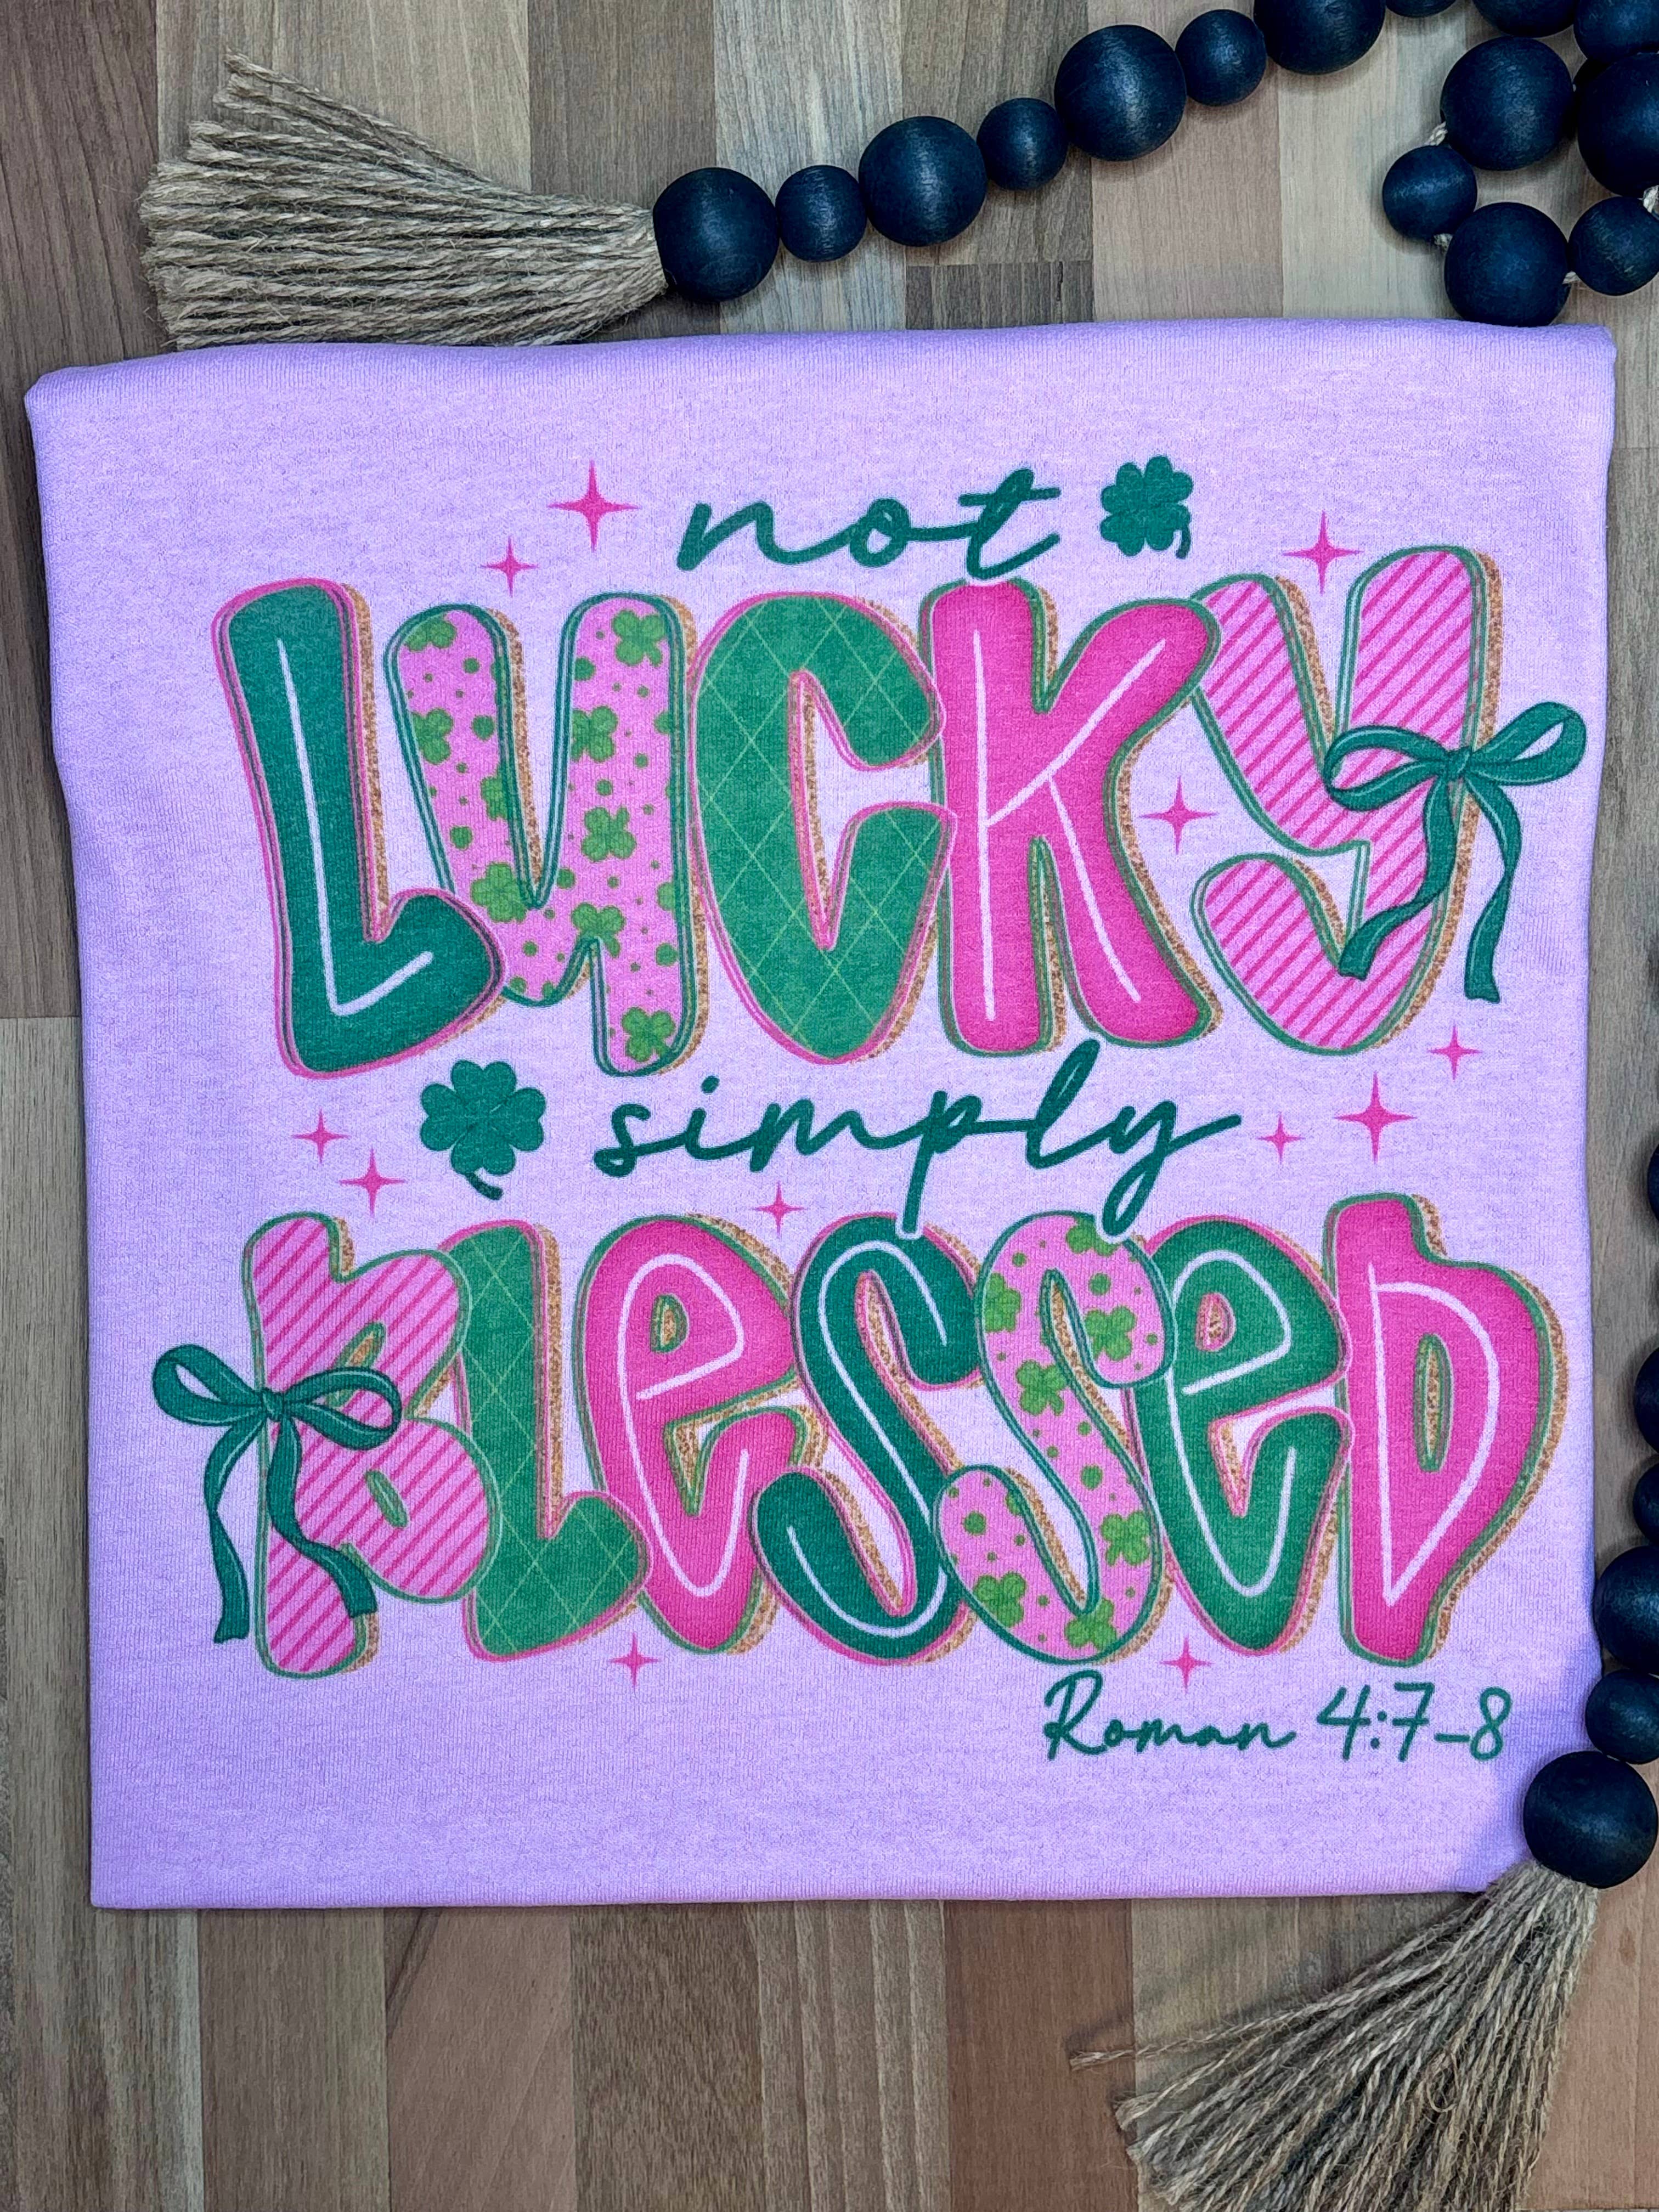 not
LUCKY
simply
BLeSSeD
Roman 4:7-8